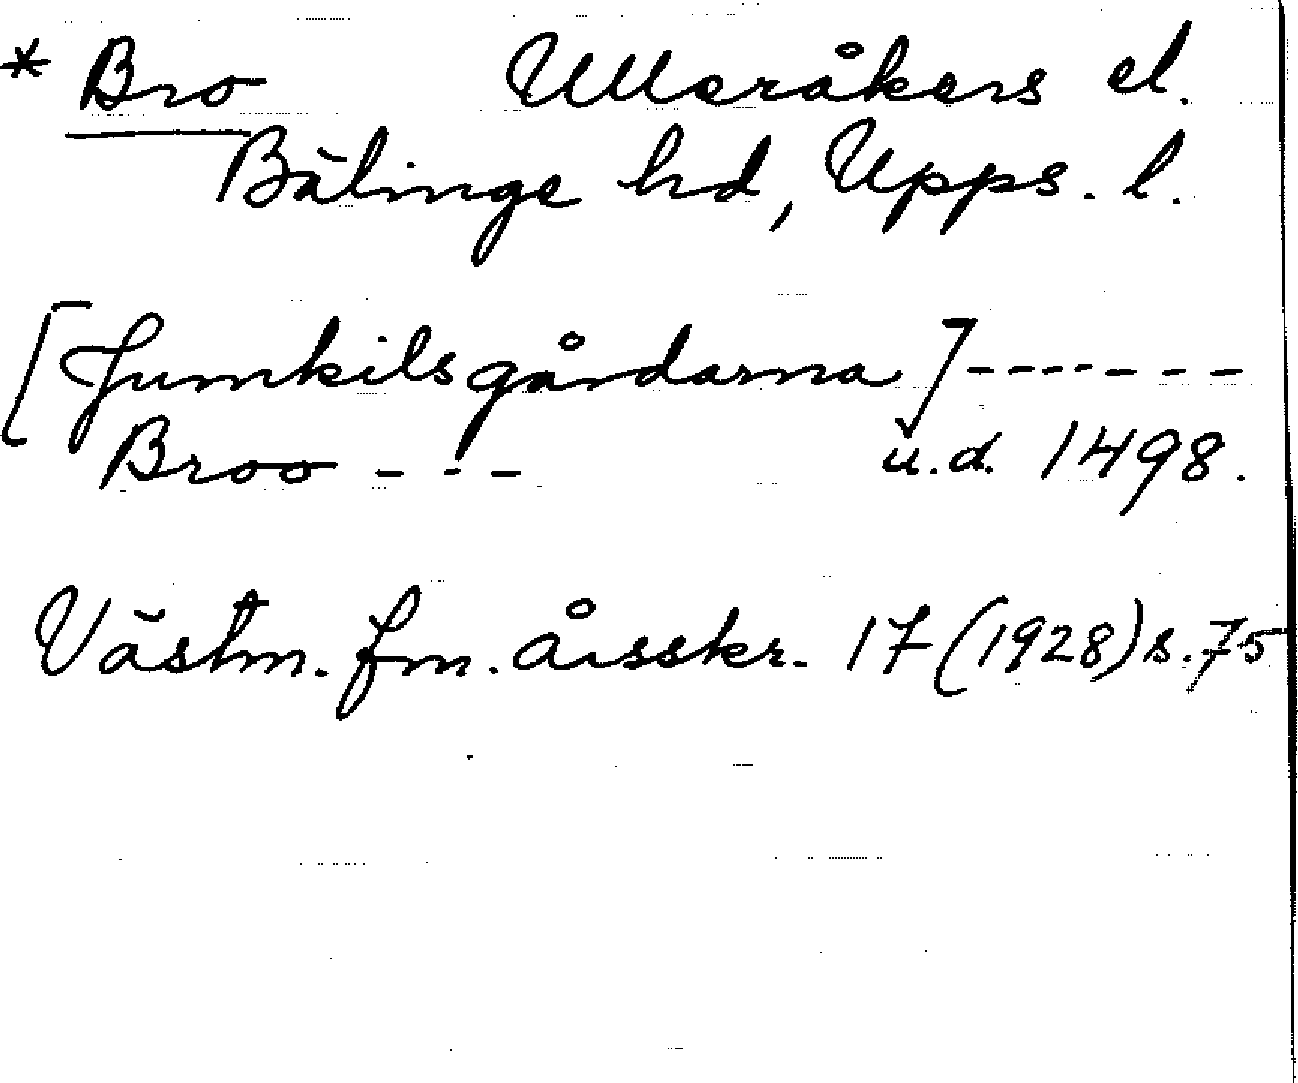 * Bro Ulleråkers el.
Bälinge hd, Upps. l.
[Jumkilsgårdarna] - - - - - - -
Broo - - - u.d. 1498.
Västm. fm. årsskr. 17 (1928) s. 75